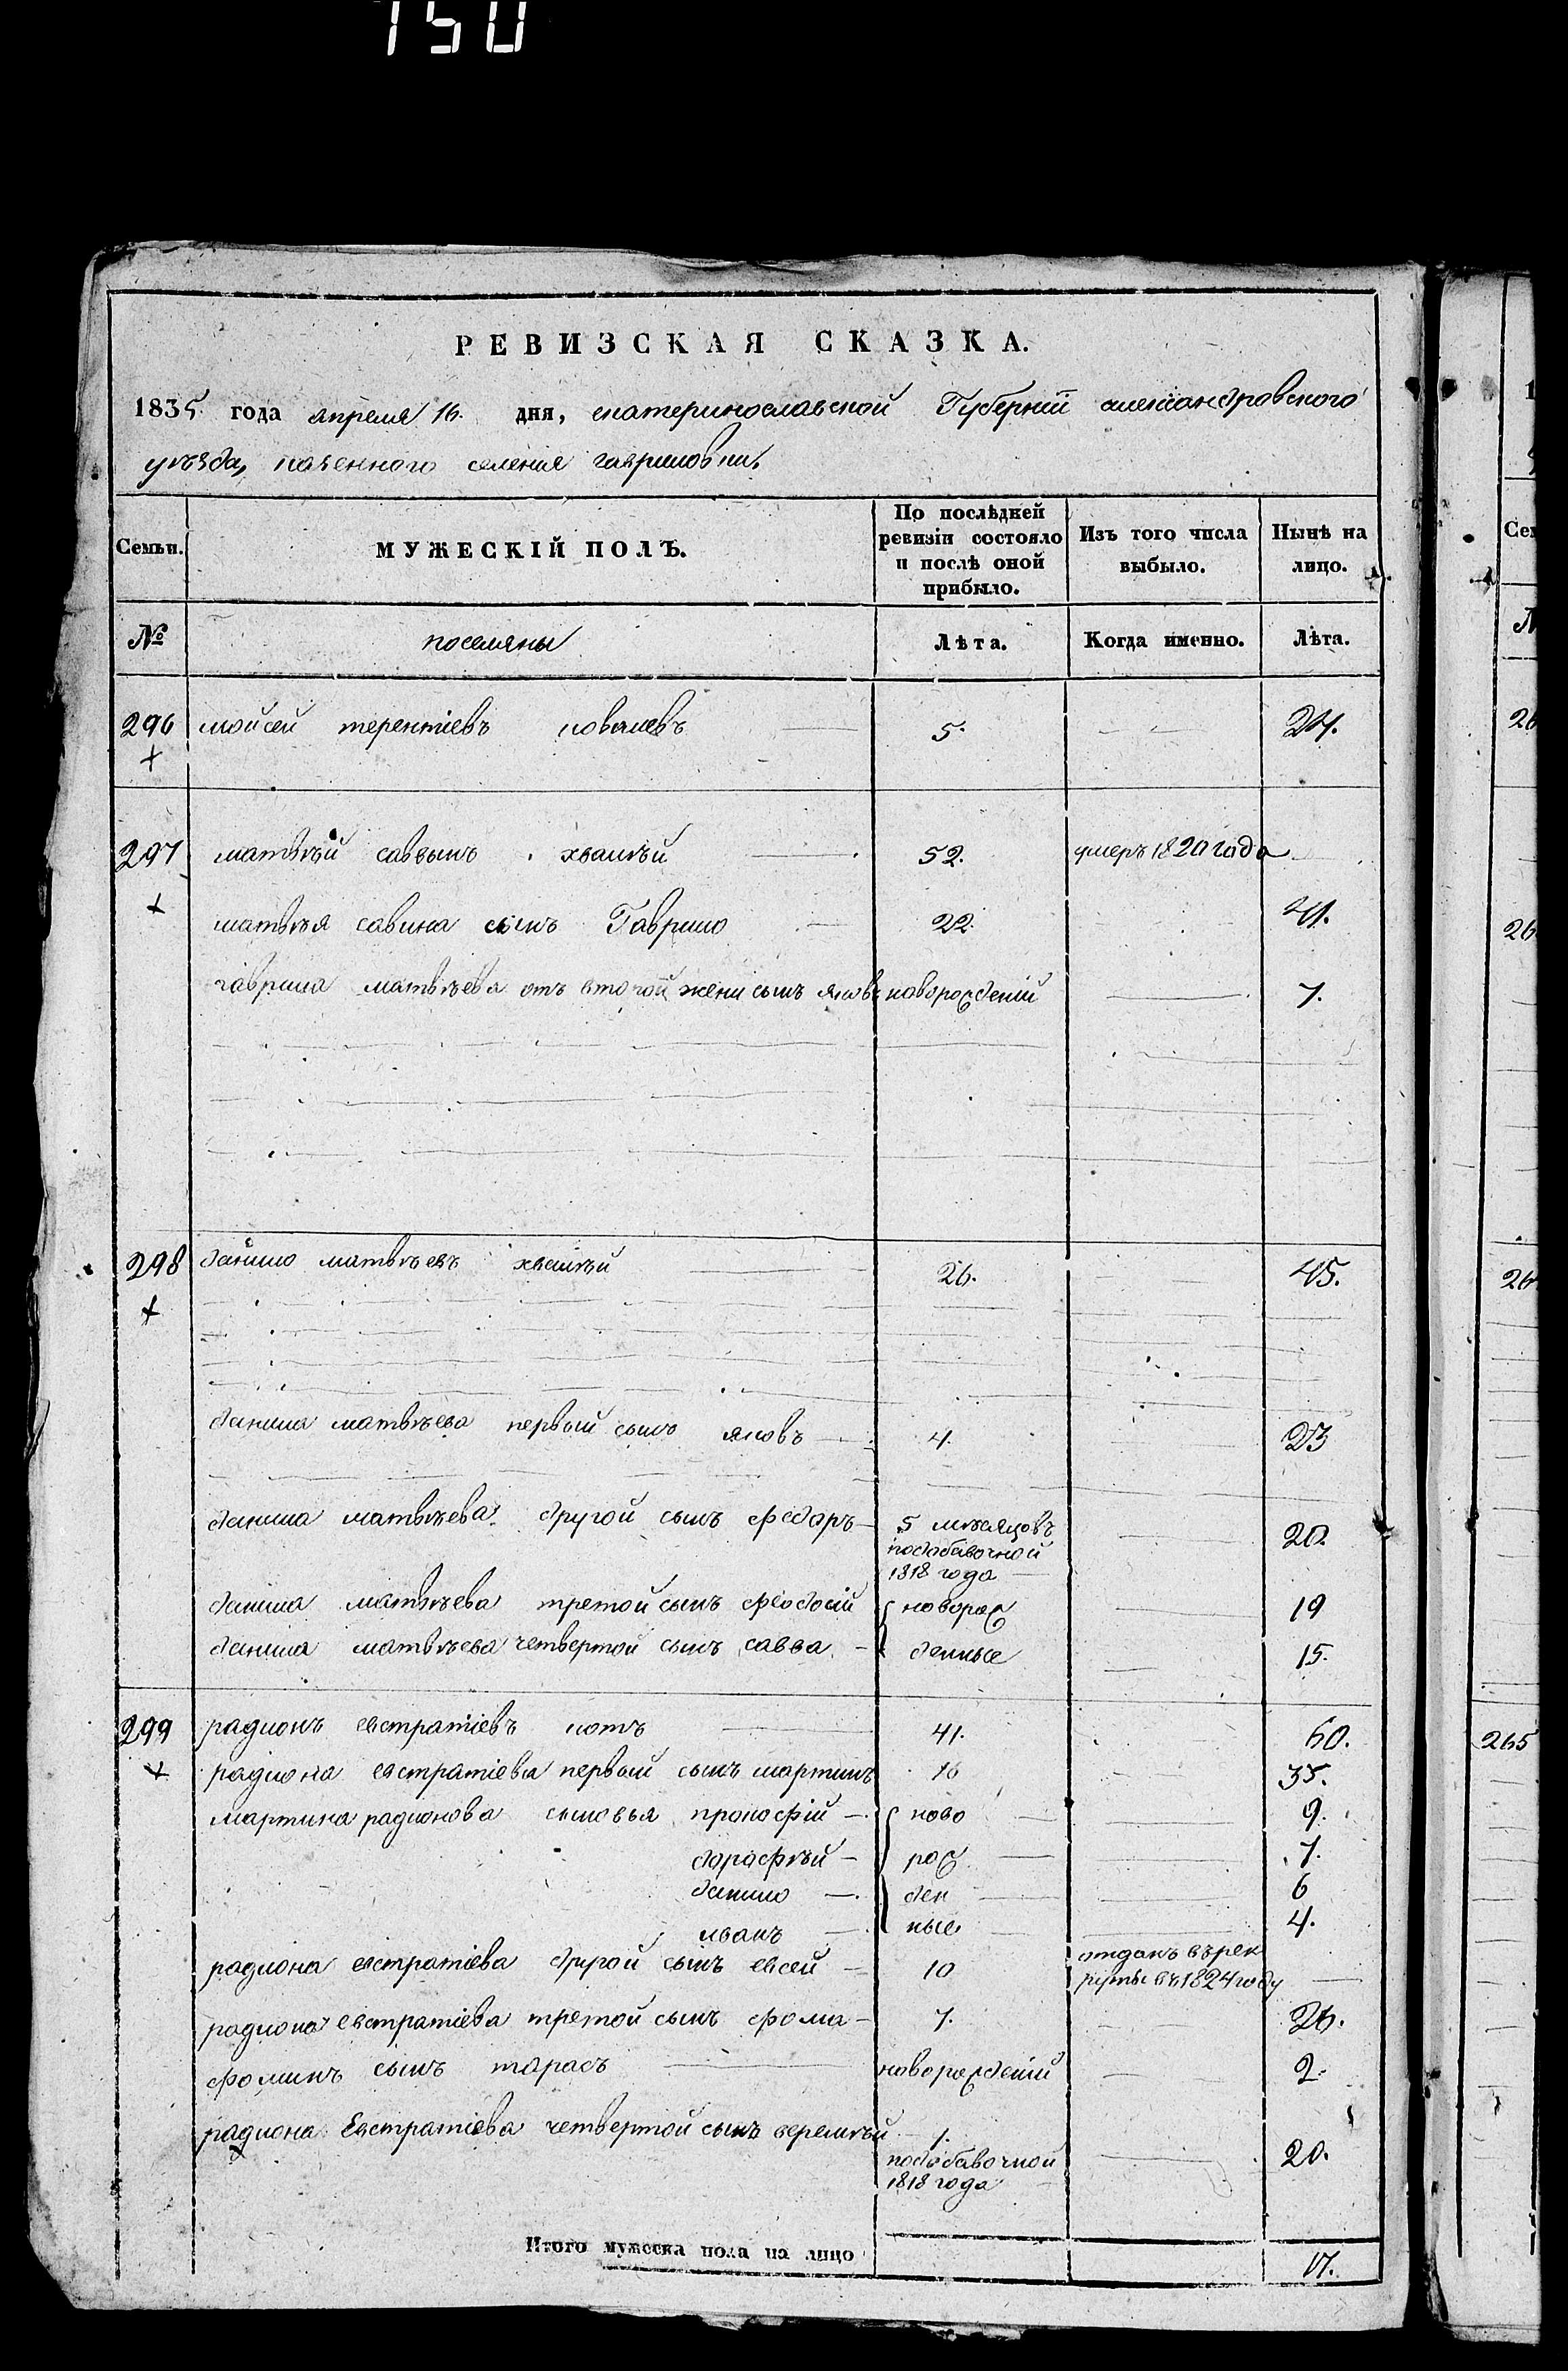 150
РЕВИЗСКАЯ СКАЗКА.
1835 года апреля 16. дня, екатеринославской Губерніи александровского
уѣзда, казенного селенія гавриловки.
Семьи.
МУЖЕСКІЙ ПОЛЪ.
По послѣдней
ревизіи состояло
и послѣ оной
прибыло.
Изъ того числа
выбыло.
Нынѣ на
лицо.
№ поселяны Лѣта. Когда именно. Лѣта.
296 мойсей терентіевъ ковалевъ 5. 24.
297 матвѣй саввынъ хвашѣй 52. умеръ 1820 года
матвѣя савина сынъ Гаврило 22. 41.
гаврила матвѣева отъ второй жени сынъ яковъ новорожденій 7.
298 данило матвѣевъ хвашѣй 26. 45.
данила матвѣева первый сынъ яковъ 4. 23
данила матвѣева другой сынъ федоръ 5 мѣсяцовъ 20.
подобавочной
1818 года
данила матвѣева третой сынъ феодосій новорож 19
данила матвѣева четвертой сынъ савва денные 15.
299 радионъ евстратіевъ котъ 41. 60.
радиона евстратіева первый сынъ мартинъ 16 35.
мартина радионова сыновья прокофій ново 9.
дорофѣй рож 7.
данило ден 6
иванъ ные 4.
радиона евстратіева другой сынъ евсей 10 отданъ върек
руты въ 1824 году
радиона евстратіева третой сынъ фома 7. 26.
фоминъ сынъ тарасъ новорожденій 2.
радиона Евстратіева четвертой сынъ веремѣй 1. 20.
подобавочной
1818 года
Итого мужеска пола на лицо 17.